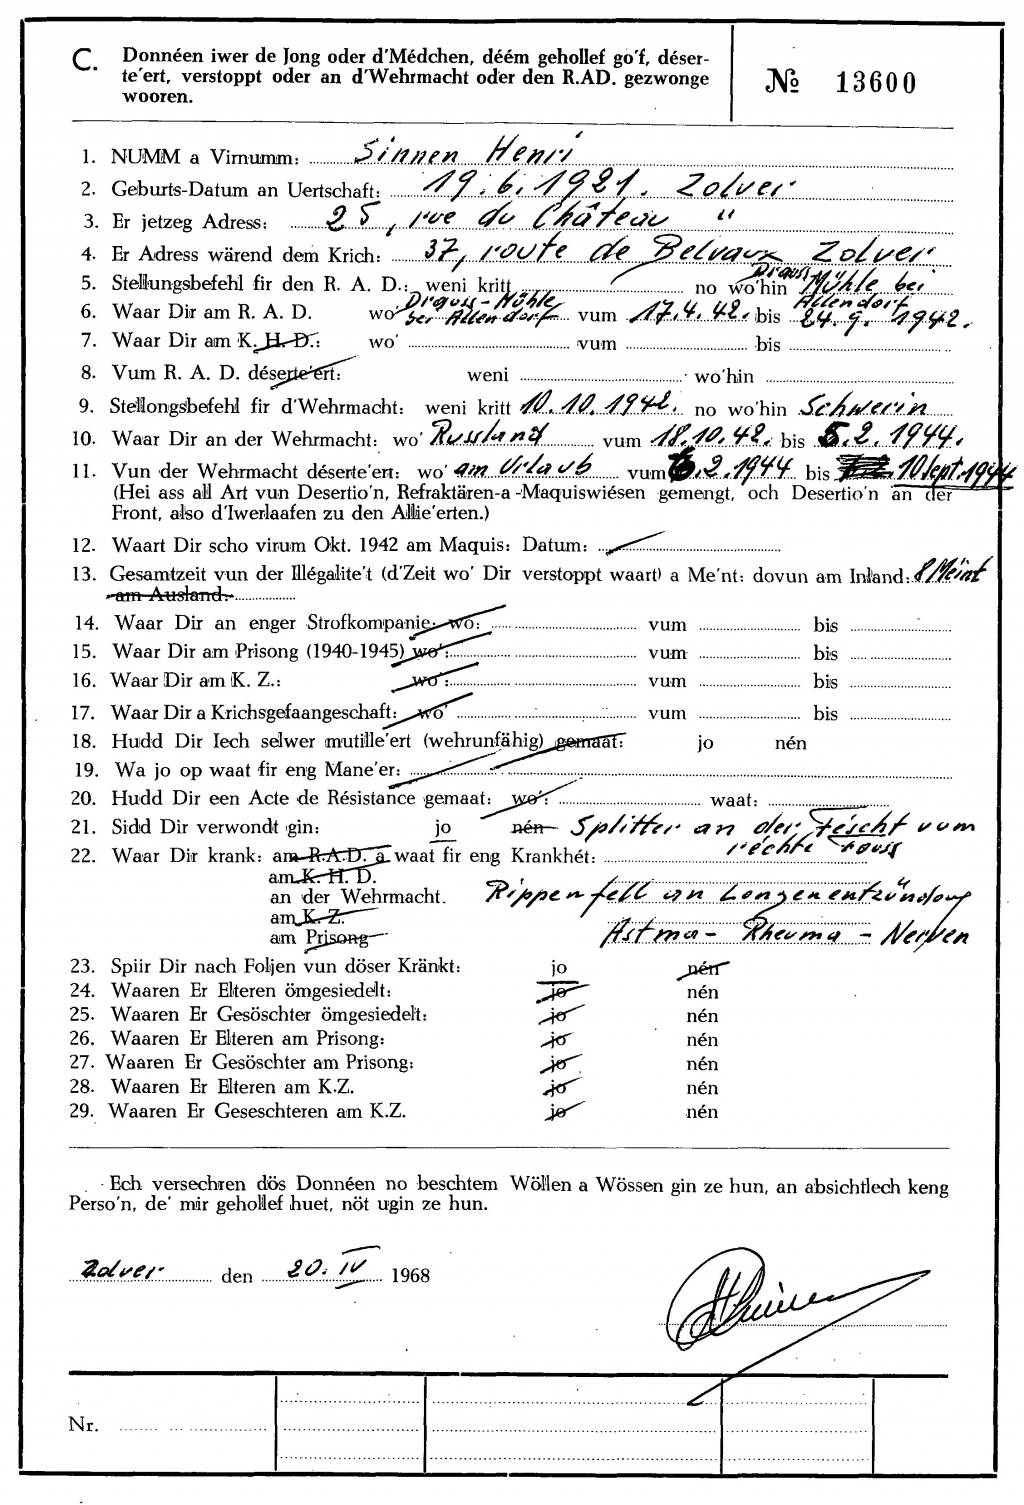 C. Donnéen iwer de Jong oder d'Médchen, déém gehollef go'f, déser-
te'ert, verstoppt oder an d'Wehrmacht oder den R.AD. gezwonge
wooren.
№ 13600
1. NUMM a Virnumm: Sinnen Henri
2. Geburts-Datum an Uertschaft: 19.6.1921. Zolver
3. Er jetzeg Adress: 25, rue du Château "
4. Er Adress wärend dem Krich: 37, route de Belvaux Zolver
5. Stellungsbefehl fir den R. A. D.: weni kritt no wo'hin Drauss Mühle bei Allendorf
6. Waar Dir am R. A. D. wo' Drauss-Mühle bei Allendorf vum 17.4.42. bis 24.9.1942.
7. Waar Dir am K. H. D.: wo' vum bis
8. Vum R. A. D. déserte'ert: weni wo'hin
9. Stellongsbefehl fir d'Wehrmacht: weni kritt 10.10.1942. no wo'hin Schwerin
10. Waar Dir an der Wehrmacht: wo' Russland vum 18.10.42. bis 5.2.1944.
11. Vun der Wehrmacht déserte'ert: wo' am Urlaub vum 6.2.1944 bis 10 Sept.1944
(Hei ass all Art vun Desertio'n, Refraktären-a-Maquiswiésen gemengt, och Desertio'n an der
Front, also d'Iwerlaafen zu den Allie'erten.)
12. Waart Dir scho virum Okt. 1942 am Maquis: Datum:
13. Gesamtzeit vun der Illégalite't (d'Zeit wo' Dir verstoppt waart) a Me'nt: dovun am Inland: 8 Méint
am Ausland:
14. Waar Dir an enger Strofkompanie: wo: vum bis
15. Waar Dir am Prisong (1940-1945) wo': vum bis
16. Waar Dir am K. Z.: wo': vum bis
17. Waar Dir a Krichsgefaangeschaft: wo' vum bis
18. Hudd Dir Iech selwer mutille'ert (wehrunfähig) gemaat: jo nén
19. Wa jo op waat fir eng Mane'er:
20. Hudd Dir een Acte de Résistance gemaat: wo': waat:
21. Sidd Dir verwondt gin: jo nén Splitter an der Féscht vum
réchte Fouss
22. Waar Dir krank: am R.A.D. a waat fir eng Krankhét:
am K. H. D.
an der Wehrmacht. Rippenfell an Longenentzündong
am K. Z.
am Prisong Astma - Rheuma - Nerven
23. Spiir Dir nach Foljen vun döser Kränkt: jo nén
24. Waaren Er Elteren ömgesiedelt: jo nén
25. Waaren Er Gesöschter ömgesiedelt: jo nén
26. Waaren Er Elteren am Prisong: jo nén
27. Waaren Er Gesöschter am Prisong: jo nén
28. Waaren Er Elteren am K.Z. jo nén
29. Waaren Er Geseschteren am K.Z. jo nén
Ech versechren dös Donnéen no beschtem Wöllen a Wössen gin ze hun, an absichtlech keng
Perso'n, de' mir gehollef huet, nöt ugin ze hun.
Zolver den 20. IV 1968
Nr.